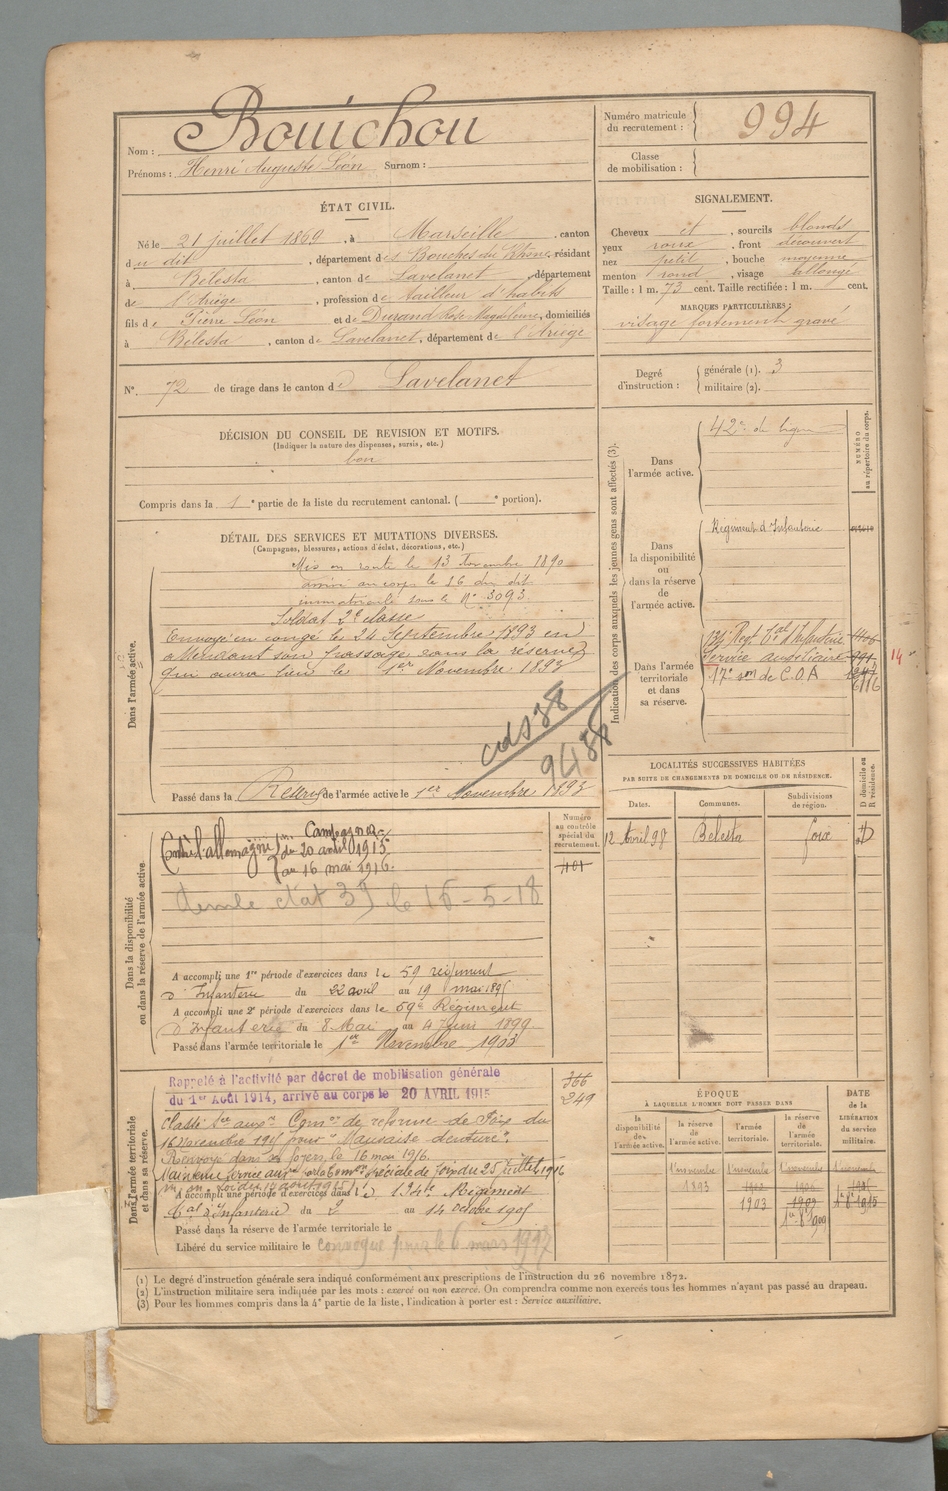 Nom : Bouichou
Prénoms : Henri Auguste Léon Surnom :
Numéro matricule du recrutement : 994
Classe de mobilisation :
ÉTAT CIVIL.
Né le 21 juillet 1869, à Marseille, canton
du dit, département des Bouches du Rhône, résidant
à Bélesta, canton de Lavelanet, département
de l'Ariège, profession de tailleur d'habits
fils de Pierre Léon et de Durand Rose Magdeleine, domiciliés
à Bélesta, canton de Lavelanet, département de l'Ariège
N° 72 de tirage dans le canton de Lavelanet
SIGNALEMENT.
Cheveux et, sourcils blonds
yeux roux, front découvert
nez petit, bouche moyenne
menton rond, visage allongé
Taille : 1 m. 73 cent. Taille rectifiée : 1 m. cent.
MARQUES PARTICULIÈRES :
visage fortement gravé
Degré d'instruction : générale (1). 3
militaire (2).
DÉCISION DU CONSEIL DE REVISION ET MOTIFS.
(Indiquer la nature des dispenses, sursis, etc.)
bon
Compris dans la 1e partie de la liste du recrutement cantonal. ( e portion).
DÉTAIL DES SERVICES ET MUTATIONS DIVERSES.
(Campagnes, blessures, actions d'éclat, décorations, etc.)
Dans l'armée active.
Mis en route le 13 Novembre 1890
arrivé au corps le 16 du dit
immatriculé sous le N° 3093
Soldat 2e classe
Envoyé en congé le 24 Septembre 1893 en
attendant son passage dans la réserve
qui aura lieu le 1er Novembre 1893
cds 38
9458
Passé dans la Réserve de l'armée active le 1er Novembre 1893
Indication des corps auxquels les jeunes gens sont affectés (3).
NUMÉRO au répertoire du corps.
Dans l'armée active.
42e de ligne
Dans la disponibilité ou dans la réserve de l'armée active.
Régiment d'Infanterie
Dans l'armée territoriale et dans sa réserve.
134 Regt Tal d'Infanterie
Service auxiliaire
17e son de C.O.A
6116
14
LOCALITÉS SUCCESSIVES HABITÉES
PAR SUITE DE CHANGEMENTS DE DOMICILE OU DE RÉSIDENCE.
Dates. Communes. Subdivisions de région. D domicile ou R résidence.
12 Avril 98 Bélesta foix D
Dans la disponibilité ou dans la réserve de l'armée active.
Numéro au contrôle spécial du recrutement.
Campagnes
Contre l'allemagne du 20 avril 1915
au 16 mai 1916
le 15-5-18
A accompli une 1re période d'exercices dans le 59 régiment
d'Infanterie du 22 avril au 19 mai 189
A accompli une 2e période d'exercices dans le 59e Régiment
d'Infanterie du 8 Mai au 4 Juin 1899
Passé dans l'armée territoriale le 1er Novembre 1903
Dans l'armée territoriale et dans sa réserve.
Rappelé à l'activité par décret de mobilisation générale
du 1er Août 1914, arrivé au corps le 20 AVRIL 1915
366
249
Classé Ser auxre Comon de réforme de Foix du
16 Novembre 1915 pour "Mauvaise denture".
Renvoyé dans ses foyers le 16 mai 1916.
Maintenu service auxre par la Common spéciale de Foix du 25 juillet 1916
A accompli une période d'exercices dans le 134e Régiment
tal d'Infanterie du 2 au 14 octobre 1905
Passé dans la réserve de l'armée territoriale le
Libéré du service militaire le convoqué pour le 6 mars 1917
ÉPOQUE
À LAQUELLE L'HOMME DOIT PASSER DANS
la disponibilité de l'armée active. la réserve de l'armée active. l'armée territoriale. la réserve de l'armée territoriale.
DATE de la LIBÉRATION du service militaire.
1 novembre 1 novembre 1 novembre 1 novembre
1893
1903
(1) Le degré d'instruction générale sera indiqué conformément aux prescriptions de l'instruction du 26 novembre 1872.
(2) L'instruction militaire sera indiquée par les mots : exercé ou non exercé. On comprendra comme non exercés tous les hommes n'ayant pas passé au drapeau.
(3) Pour les hommes compris dans la 4e partie de la liste, l'indication à porter est : Service auxiliaire.